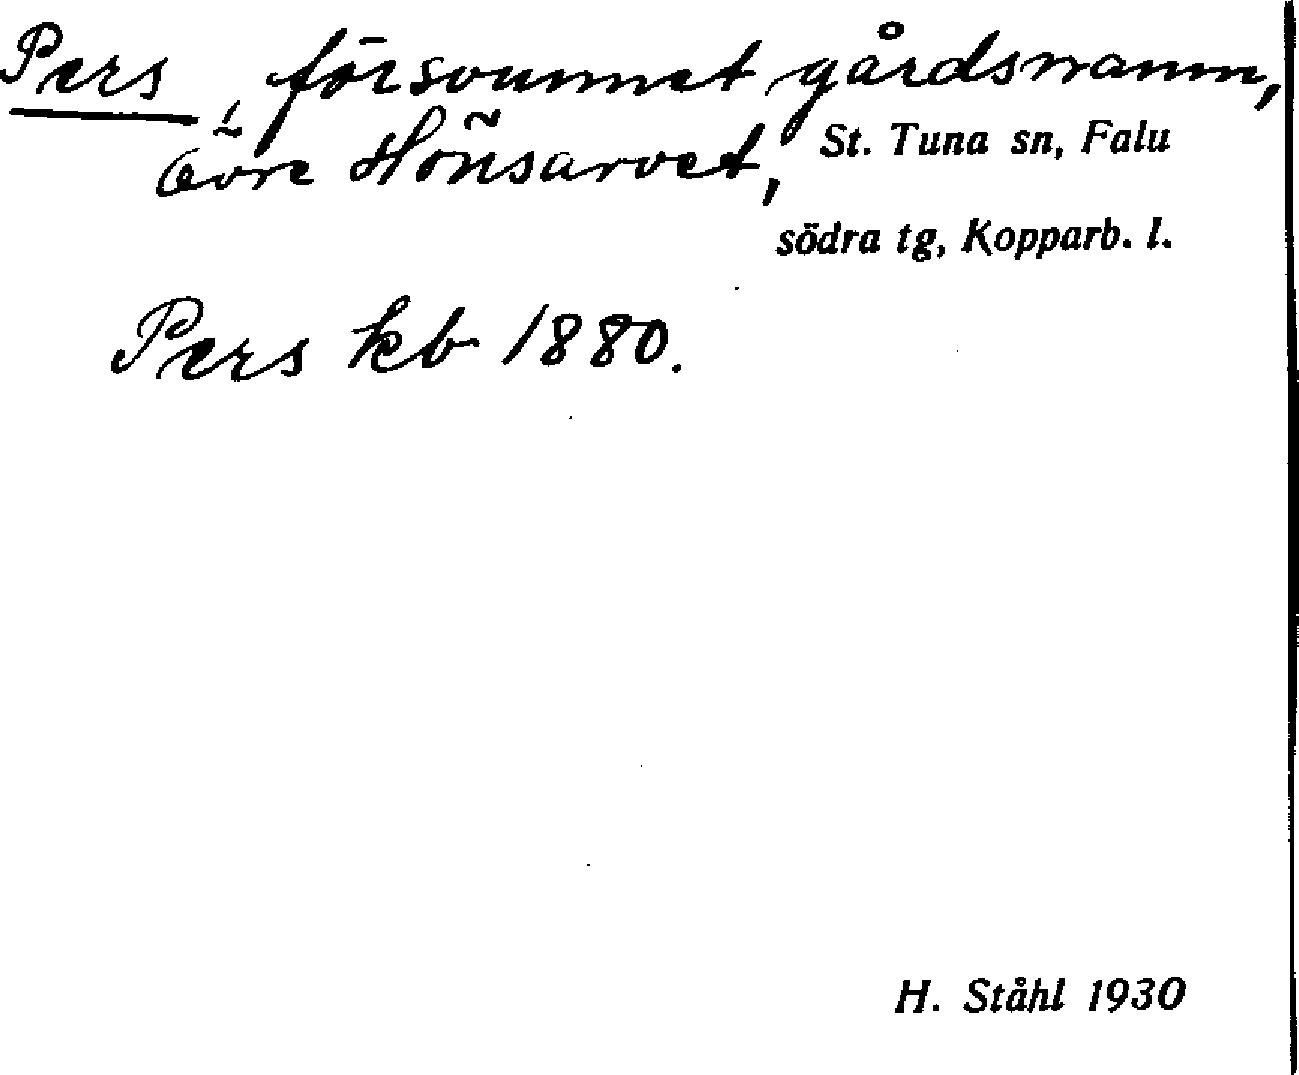 Pers, försvunnet gårdsnamn,
Övre Hönsarvet, St. Tuna sn, Falu
södra tg, Kopparb. l.
Pers kb 1880.
H. Ståhl 1930